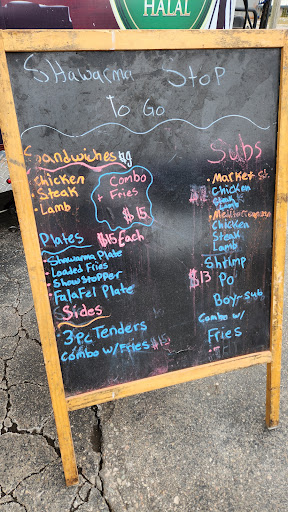 HALAL
Shawarma Stop
to Go
Sandwiches $9
Chicken
Steak
• Lamb
Combo
+ Fries
$15
Plates $15 Each
• Shawarma Plate
• Loaded Fries
• Show Stopper
• Falafel Plate
Sides
3pc Tenders
Combo w/Fries
Subs
• Market St.
Chicken
Steak
Lamb
• Mediterranean
Chicken
Steak
Lamb
Shrimp
$13 Po'
Boy-Sub
Combo w/
Fries